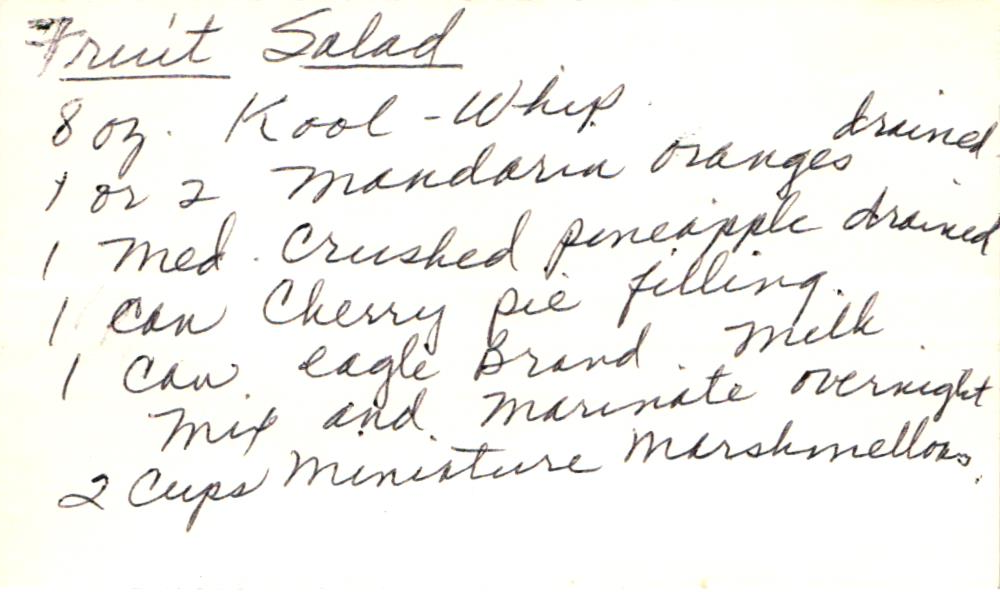 Fruit Salad
8 oz. Kool-Whip
1 or 2 Mandarin oranges drained
1 Med. Crushed pineapple drained
1 can Cherry pie filling.
1 can eagle Brand Milk
Mix and marinate overnight
2 Cups Miniature Marshmellows.